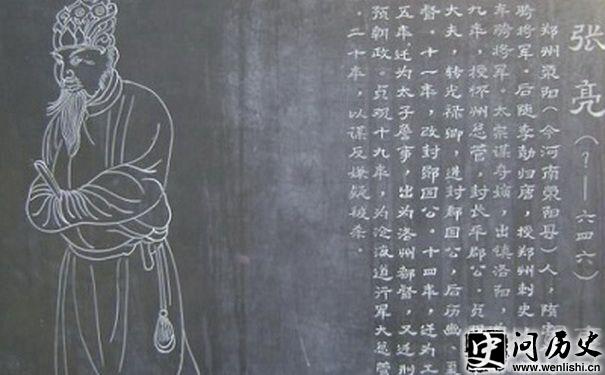 张亮（？——六四六）
郑州荥阳（今河南荥阳县）人，隋
骑将军。后随李勣归唐，授郑州刺史
车骑将军。太宗谋夺嫡，出镇洛阳，
九年，授怀州总管，封长平郡公。贞
大夫，转光禄卿，进封鄅国公，后历豳、夏
督。十一年，改封郧国公。十四年，迁为工
五年，迁为太子詹事，出为洛州都督，又迁刑
预朝政。贞观十九年，为沧海道行军大总管
。二十年，以谋反嫌疑被杀。
史 问历史
www.wenlishi.cn